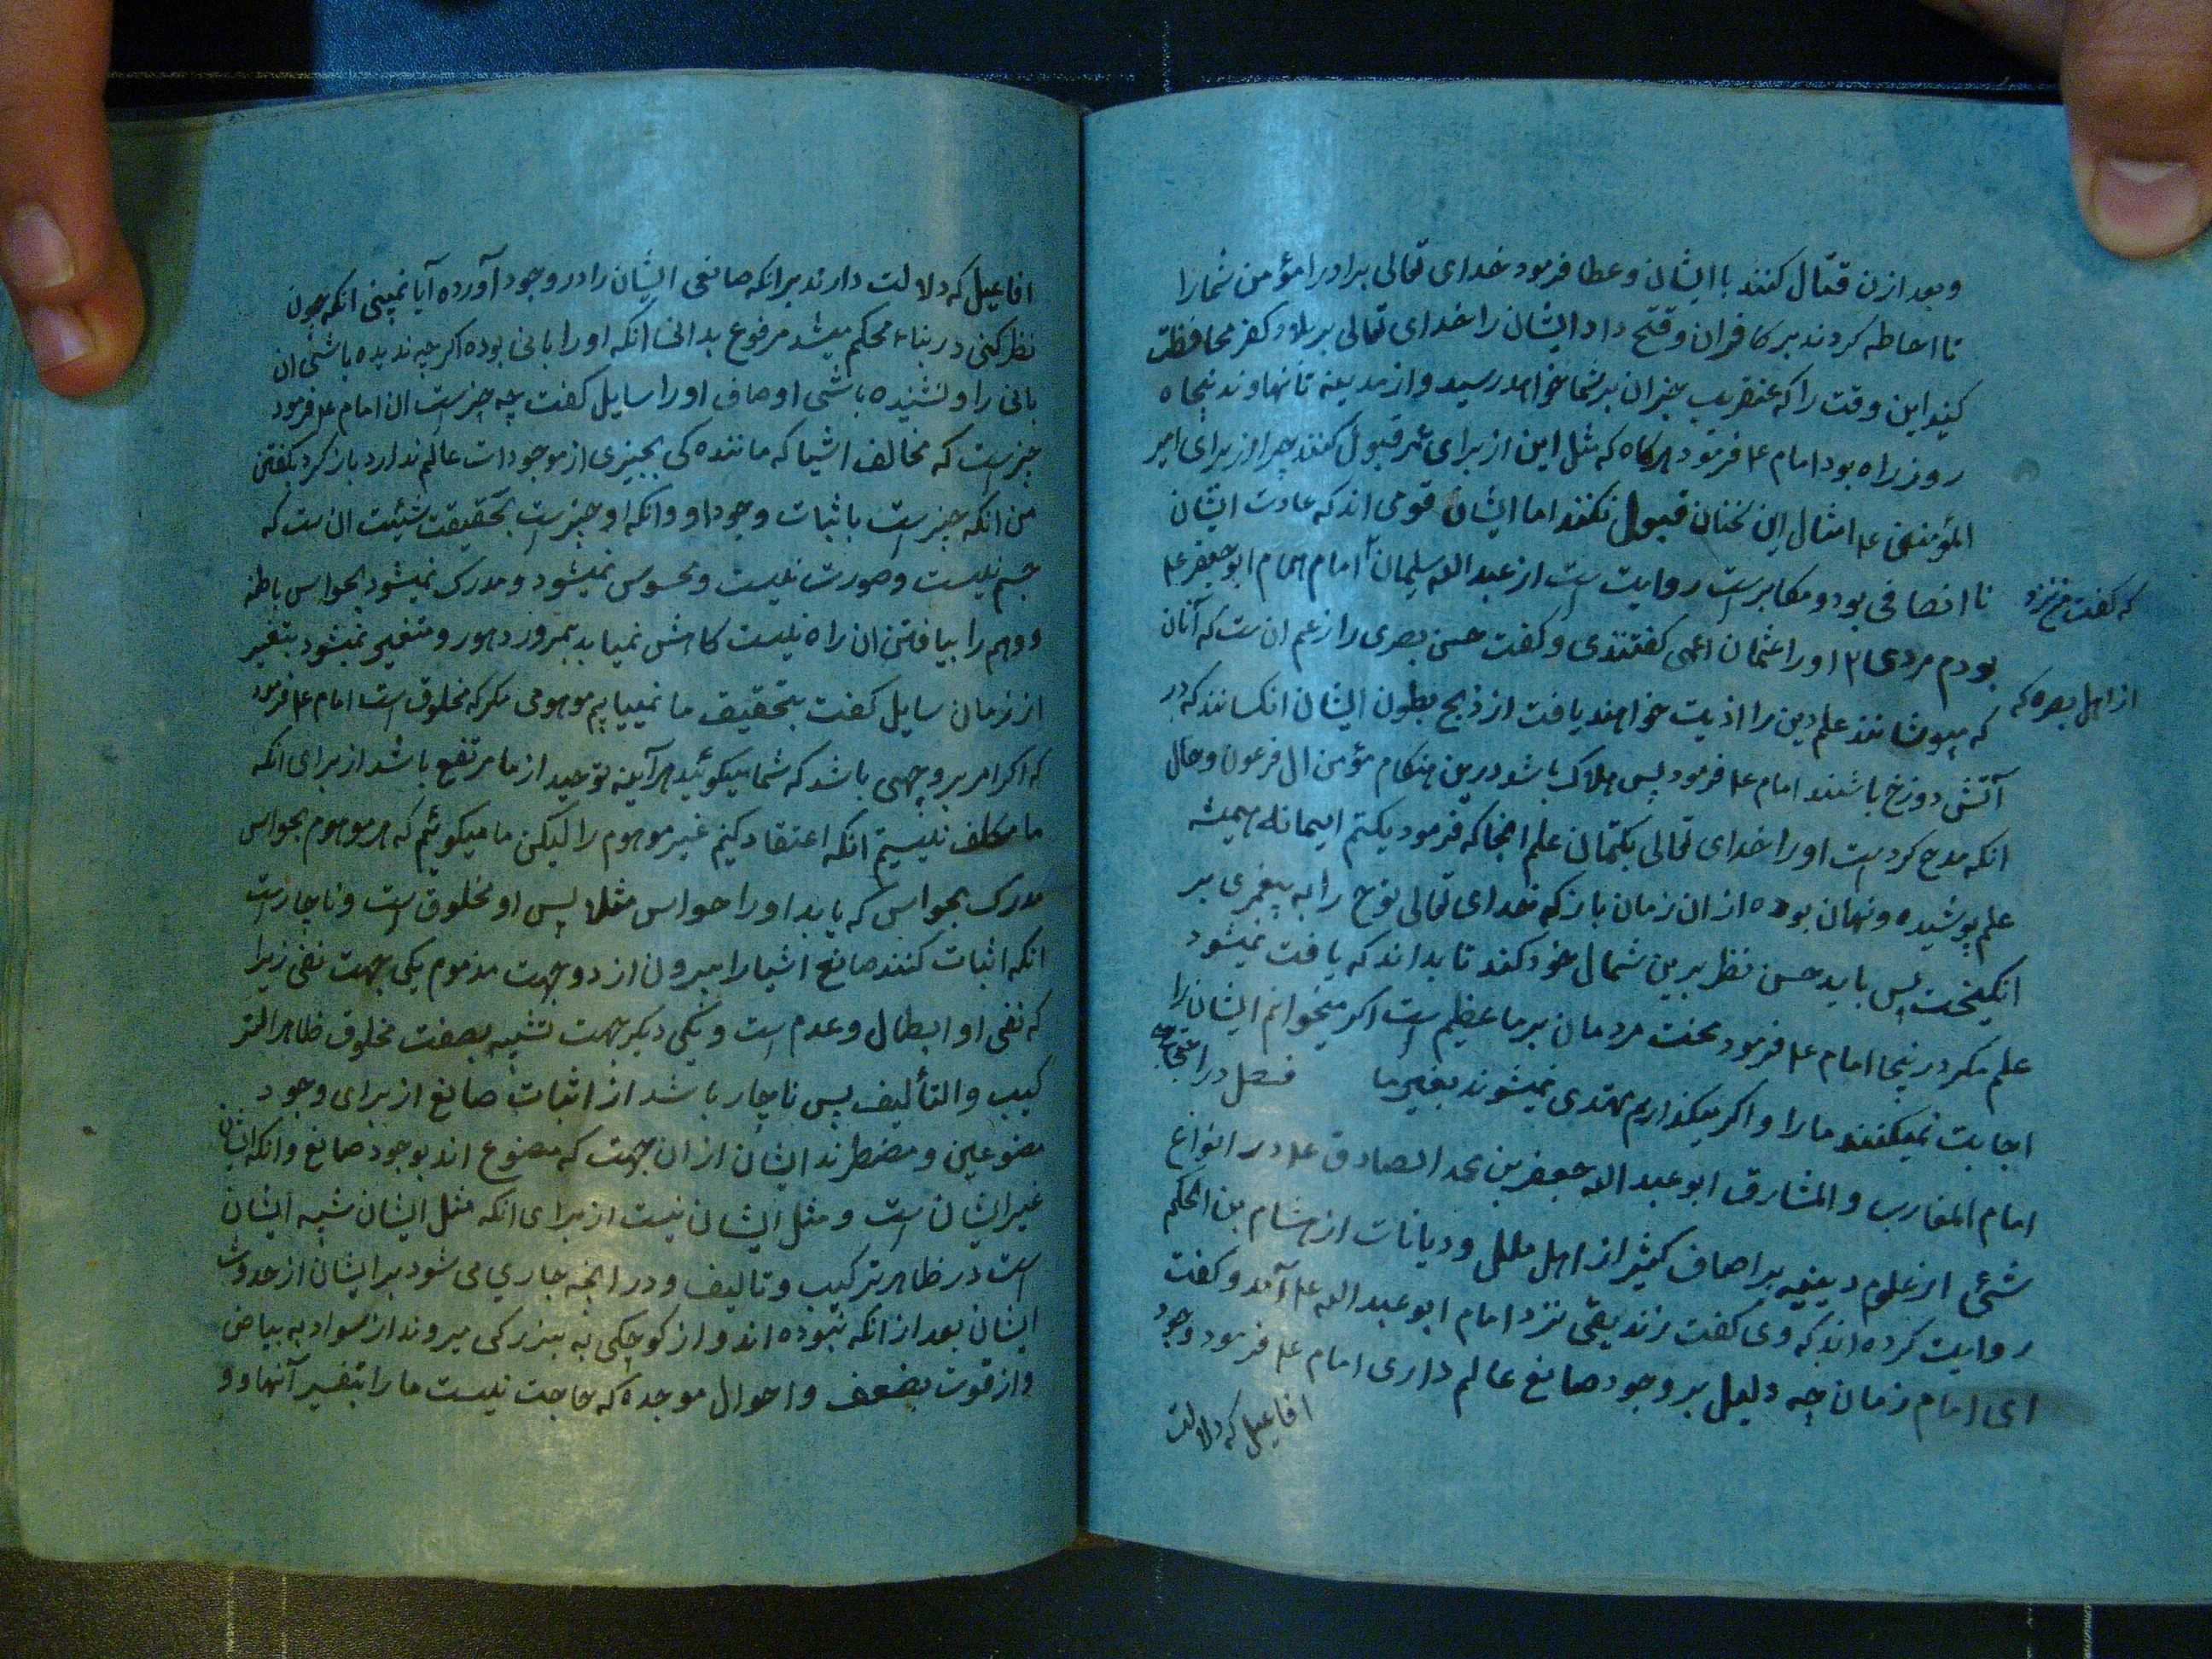 و بعد ازن قتال کنند با ایشان و عطا فرمود خدای تعالی برادرا مؤمن شما را
تا احاطه کردند بر کافران و فتح داد ایشان را خدای تعالی بر بلاد کفر محافظت
کنید این وقت را که عنقریب خبر ان بر شما خواهد رسید و از مدینه تا نهاوند پنجاه
روز راه بود امام ع فرمود هرکاه که مثل این از برای عمر قبول کنند چرا از برای امیر
المؤمنین ع امثال این سخنان قبول نکنند اما ایشان قومی اند که عادت ایشان
نا انصافی بود و مکابر است روایت است از عبد الله سلیمان امام همام ابو جعفر ع
که کفت من نزد
بودم مردی ۲ او را عثمان اعمی کفتندی و کفت حسن بصری را زعم ان ست که آنان
از اهل بصره که
که بپوشانند علم دین را اذیت خواهند یافت از ذبح بطون ایشان انکسانند که در
آتش دوزخ باشند امام ع فرمود پس هلاک باشد درین هنکام مؤمن ال فرعون و حال
انکه مدح کرد است او را خدای تعالی بکتمان علم انجا که فرمود یکتم ایمانه همیشه
علم پوشیده و نهان بوده از ان زمان باز که خدای تعالی نوح را به پیغمبری بر
انکیخت پس باید حسن نظر بر یین شمال خود کند تا بداند که یافت نمیشود
علم مکر درینجا امام ع فرمود محنت مردمان بر ما عظیم است اکر میخوانم ایشان را
اجابت نمیکنند ما را و اکر میکذاریم مهتدی نمیشوند بغیر ما فصل در احتجاج
امام المغارب و المشارق ابو عبد الله جعفر بن محمد الصادق ع در انواع
شتی از علوم دینیه بر اصناف کثیر از اهل ملل و دیانات از هشام بن الحکم
روایت کرده اند که وی کفت زندیقی نزد امام ابو عبد الله ع آمد و کفت
ای امام زمان چه دلیل بر وجود صانع عالم داری امام ع فرمود وجود
افاعیل که دلالت
افاعیل که دلالت دارند بر انکه صانعی ایشان را در وجود آورده آیا نمیبینی انکه چون
نظر کنی در بناء محکم مشید مرفوع بدانی انکه او را بانی بوده اکر چه ندیده باشی ان
بانی را و نشنیده باشی اوصاف او را سایل کفت چه چیز است ان امام ع فرمود
چیزیست که مخالف اشیا که مانندکی بچیزی از موجودات عالم ندارد باز کرد بکفتن
من انکه چیز است باثبات وجود او و انکه او چیز است بحقیقت شیئت ان ست که
جسم نیست و صورت نیست و محسوس نمیشود و مدرک نمیشود بحواس باطنه
و وهم را بیافتن ان راه نیست کاهش نمییابد بمرور دهور و متغیر نمیشود بتغیر
از زمان سایل کفت بتحقیق ما نمییابیم موهومی مکر که مخلوق است امام ع فرمود
که اکر امر بر وجهی باشد که شما میکوئید هر آینه توحید از ما مرتفع باشد از برای انکه
ما مکلف نیستیم انکه اعتقاد کنیم غیر موهوم را لیکن ما میکوئیم که هر موهوم بحواس
مدرک بحواس که یابد او را حواس مثلا پس او مخلوق است و ناچار است
انکه اثبات کنند صانع اشیا را بیرون از دو جهت مذموم یکی جهت نفی زیرا
که نفی او ابطال و عدم است و یکی دیکر جهت تشبیه بصفت مخلوق ظاهر التر
کیب و التألیف پس ناچار باشد از اثبات صانع از برای وجود
مصنوعین و مضطرند ایشان از ان جهت که مصنوع اند بوجود صانع و انکه ایشان
غیر ایشان است و مثل ایشان نیست از برای انکه مثل ایشان شبیه ایشان
است در ظاهر ترکیب و تالیف و در انچه جاری می شود بر ایشان از حدوث
ایشان بعد از انکه نبوده اند و از کوچکی به بزرکی میروند از سواد به بیاض
و از قوت بضعف و احوال موجده که حاجت نیست ما را بتفسیر آنها و و